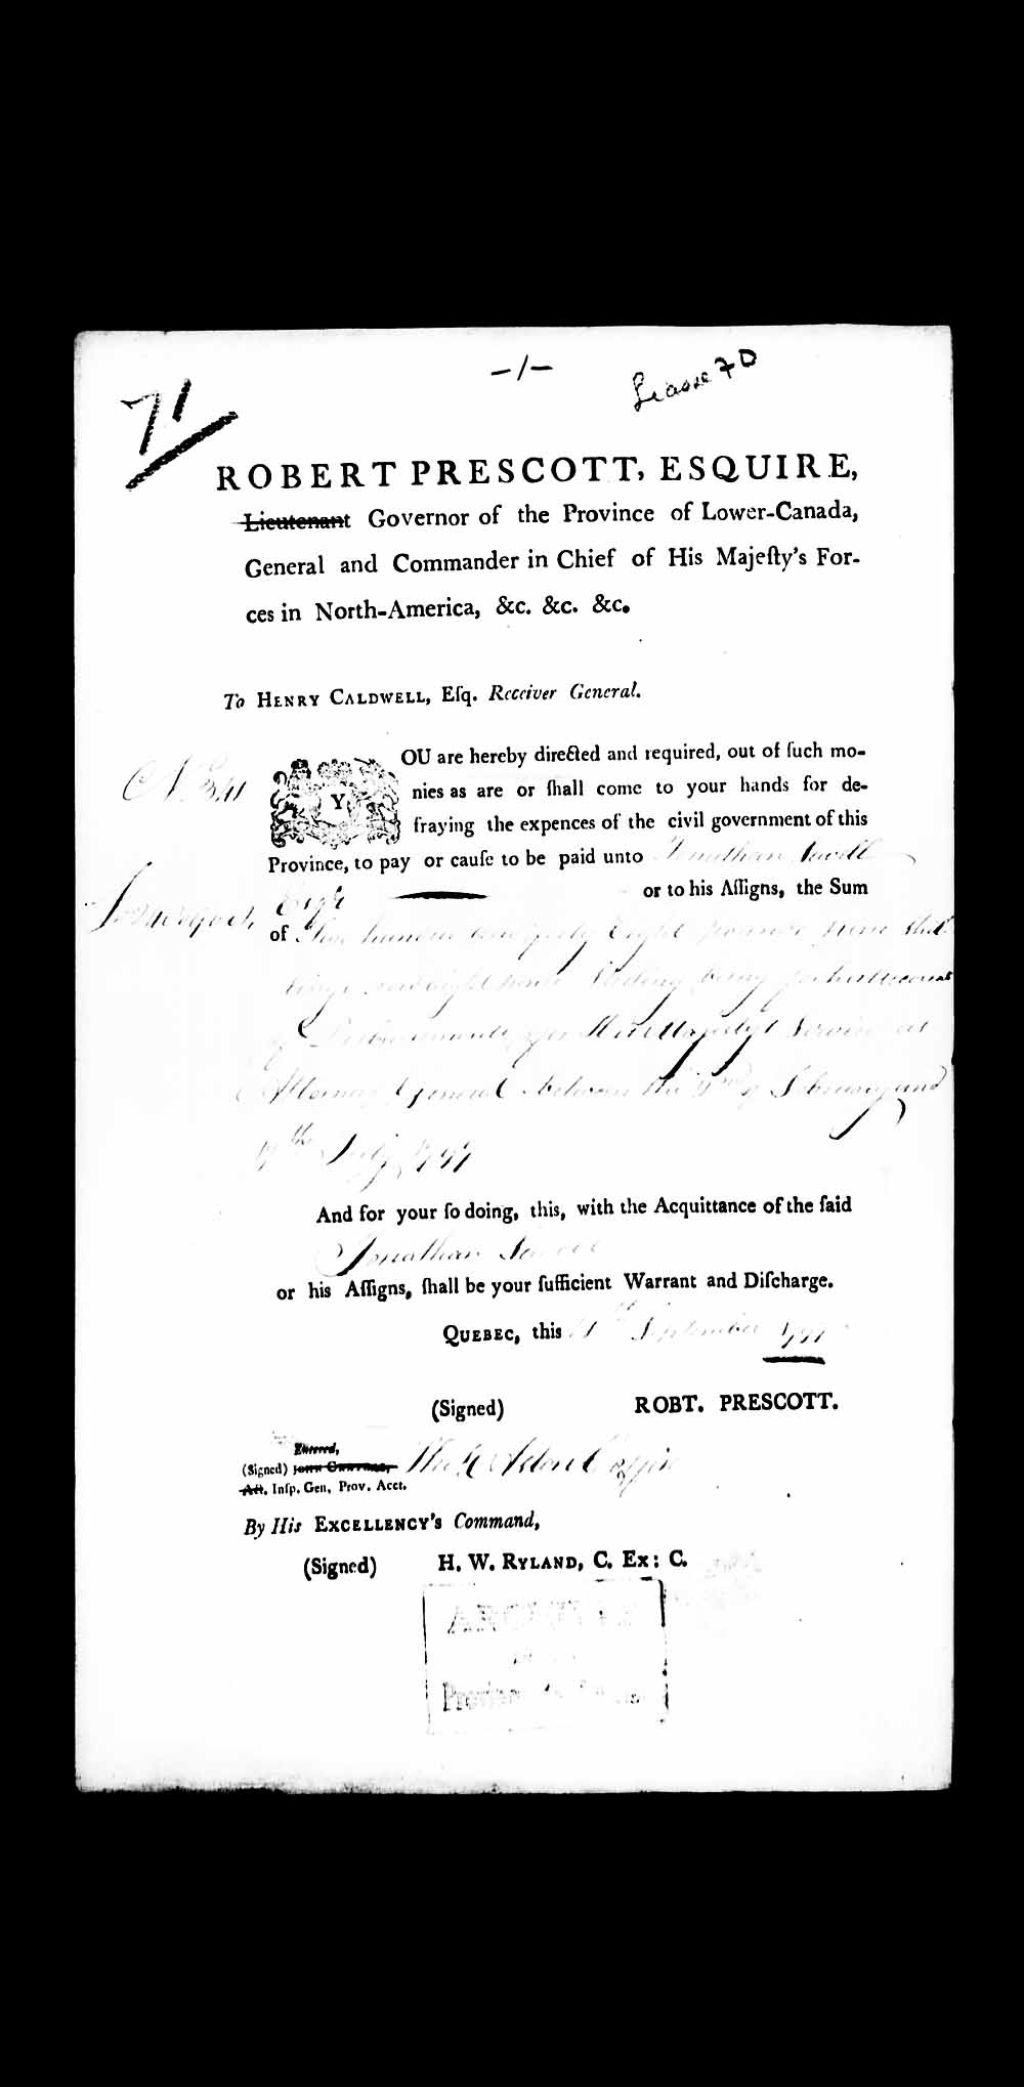 -/-
71
ROBERT PRESCOTT, ESQUIRE,
Lieutenant Governor of the Province of Lower-Canada,
General and Commander in Chief of His Majeſty's For-
ces in North-America, &c. &c. &c.
To HENRY CALDWELL, Eſq. Receiver General.
YOU are hereby directed and required, out of ſuch mo-
nies as are or ſhall come to your hands for de-
fraying the expences of the civil government of this
Province, to pay or cauſe to be paid unto Jonathan Sewell
Esqr or to his Aſſigns, the Sum
of hundred and forty Eight pounds nine shil
lings and Eight pence Sterling being for his account
of Disbursements for His Majesty's Service as
Attorney General between the of February and
July
And for your ſo doing, this, with the Acquittance of the ſaid
Jonathan Sewell
or his Aſſigns, ſhall be your ſufficient Warrant and Diſcharge.
QUEBEC, this September
(Signed) ROBT. PRESCOTT.
Entered,
(Signed) Aston Coffin
Aſt. Inſp. Gen. Prov. Acct.
By His EXCELLENCY'S Command,
(Signed) H. W. RYLAND, C. Ex: C.